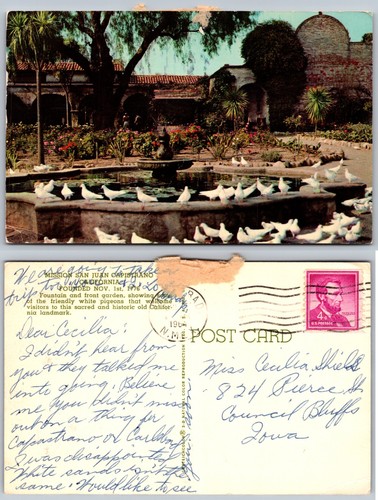 MISSION SAN JUAN CAPISTRANO
CALIFORNIA
FOUNDED NOV. 1st, 1776
Fountain and front garden, showing
of the friendly white pigeons that
visitors to this sacred and historic old Califor-
nia landmark.
Dear Cecilia:
I didn't hear from
you & they talked me
into going. Believe
me you didn't miss
out on a thing for
capastrano or Carlsbad
I was disappointed
White sands isn't the
same. Would like to see
POST CARD
N.M.
4¢
U.S. POSTAGE
Miss Cecilia Shields
824 Pierce St
Council Bluffs
Iowa